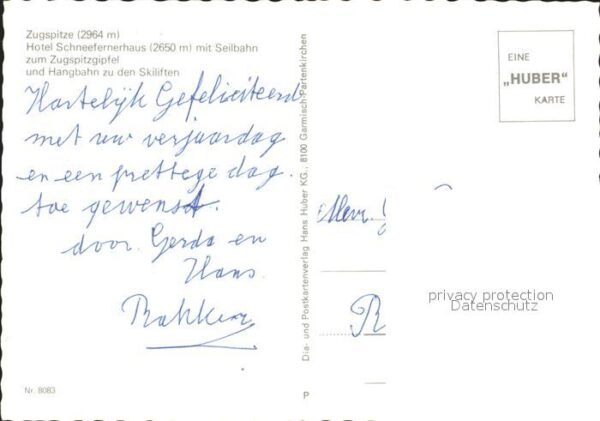 Zugspitze (2964 m)
Hotel Schneefernerhaus (2650 m) mit Seilbahn
zum Zugspitzgipfel
und Hangbahn zu den Skiliften
Hartelijk Gefeliciteerd
met uw verjaardag
en een prettege dag.
toe gewenst.
door. Gerda en
Hans.
Bakker
Nr. 8083
Dia- und Postkartenverlag Hans Huber KG., 8100 Garmisch-Partenkirchen
P
EINE
„HUBER"
KARTE
Mevr.
privacy protection
Datenschutz